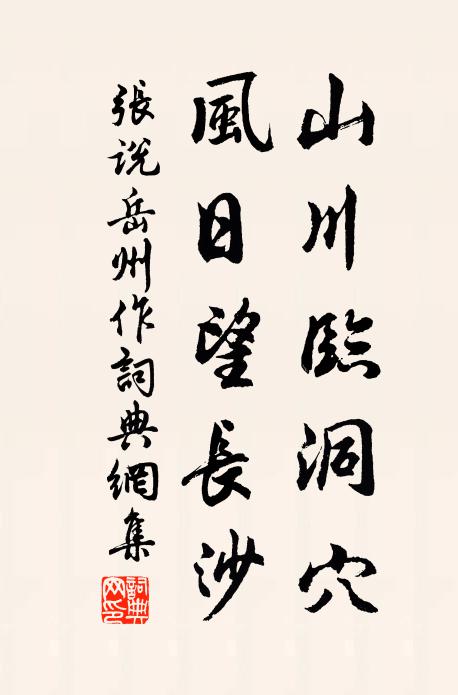 山川臨洞穴
風日望長沙
張說岳州作詞典網集
詞典網印